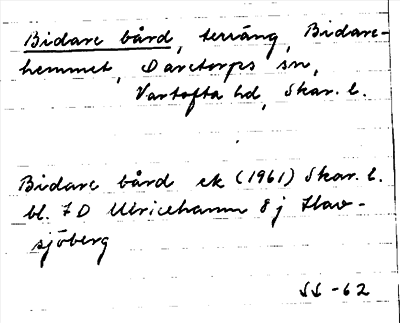 Bidare bård, terräng, Bidare-
hemmet, Daretorps sn,
Vartofta hd, Skar. l.
Bidare bård ek (1961) Skar. l.
bl. 7 D Ulricehamn 8 j Hav-
sjöberg
SS -62